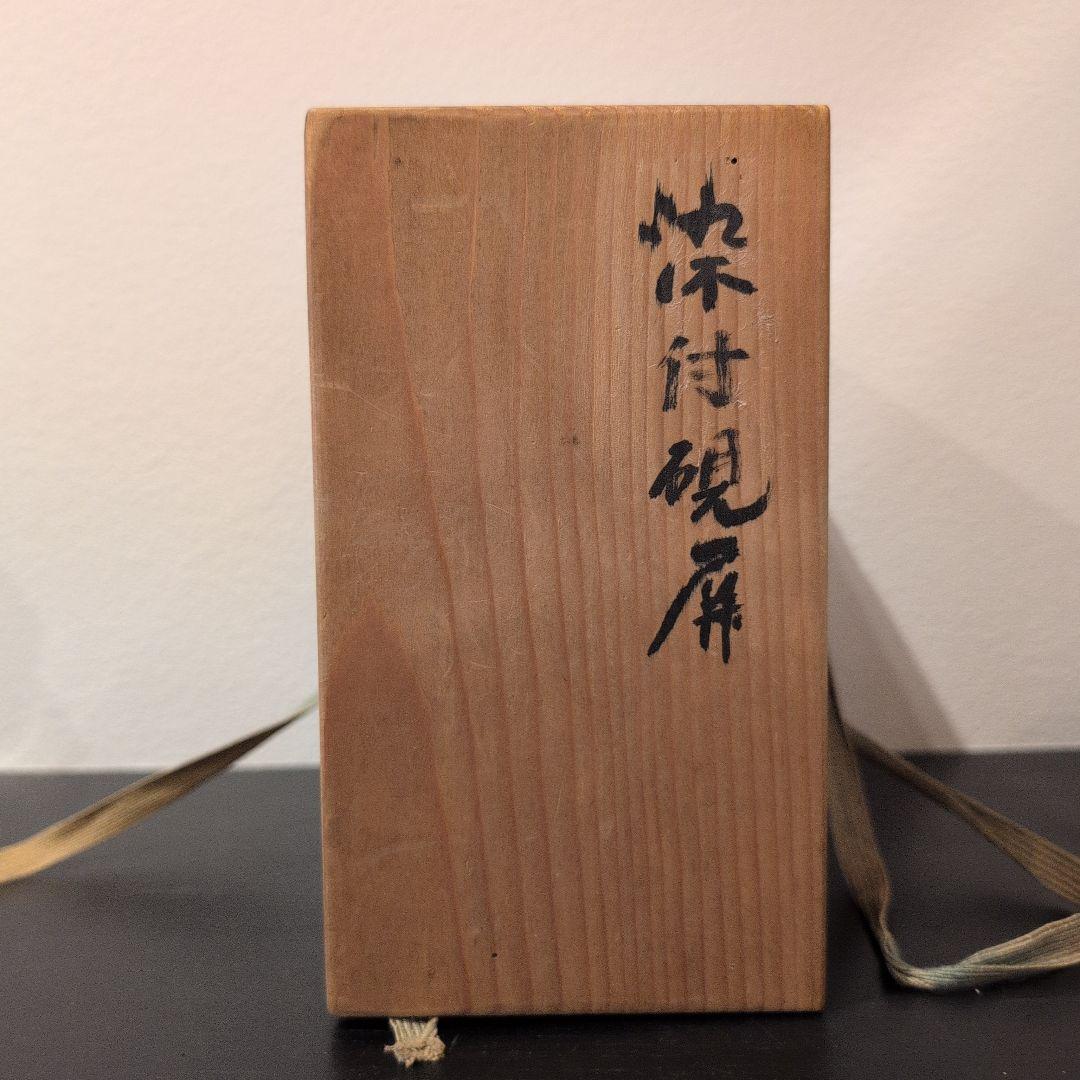 染付硯屏